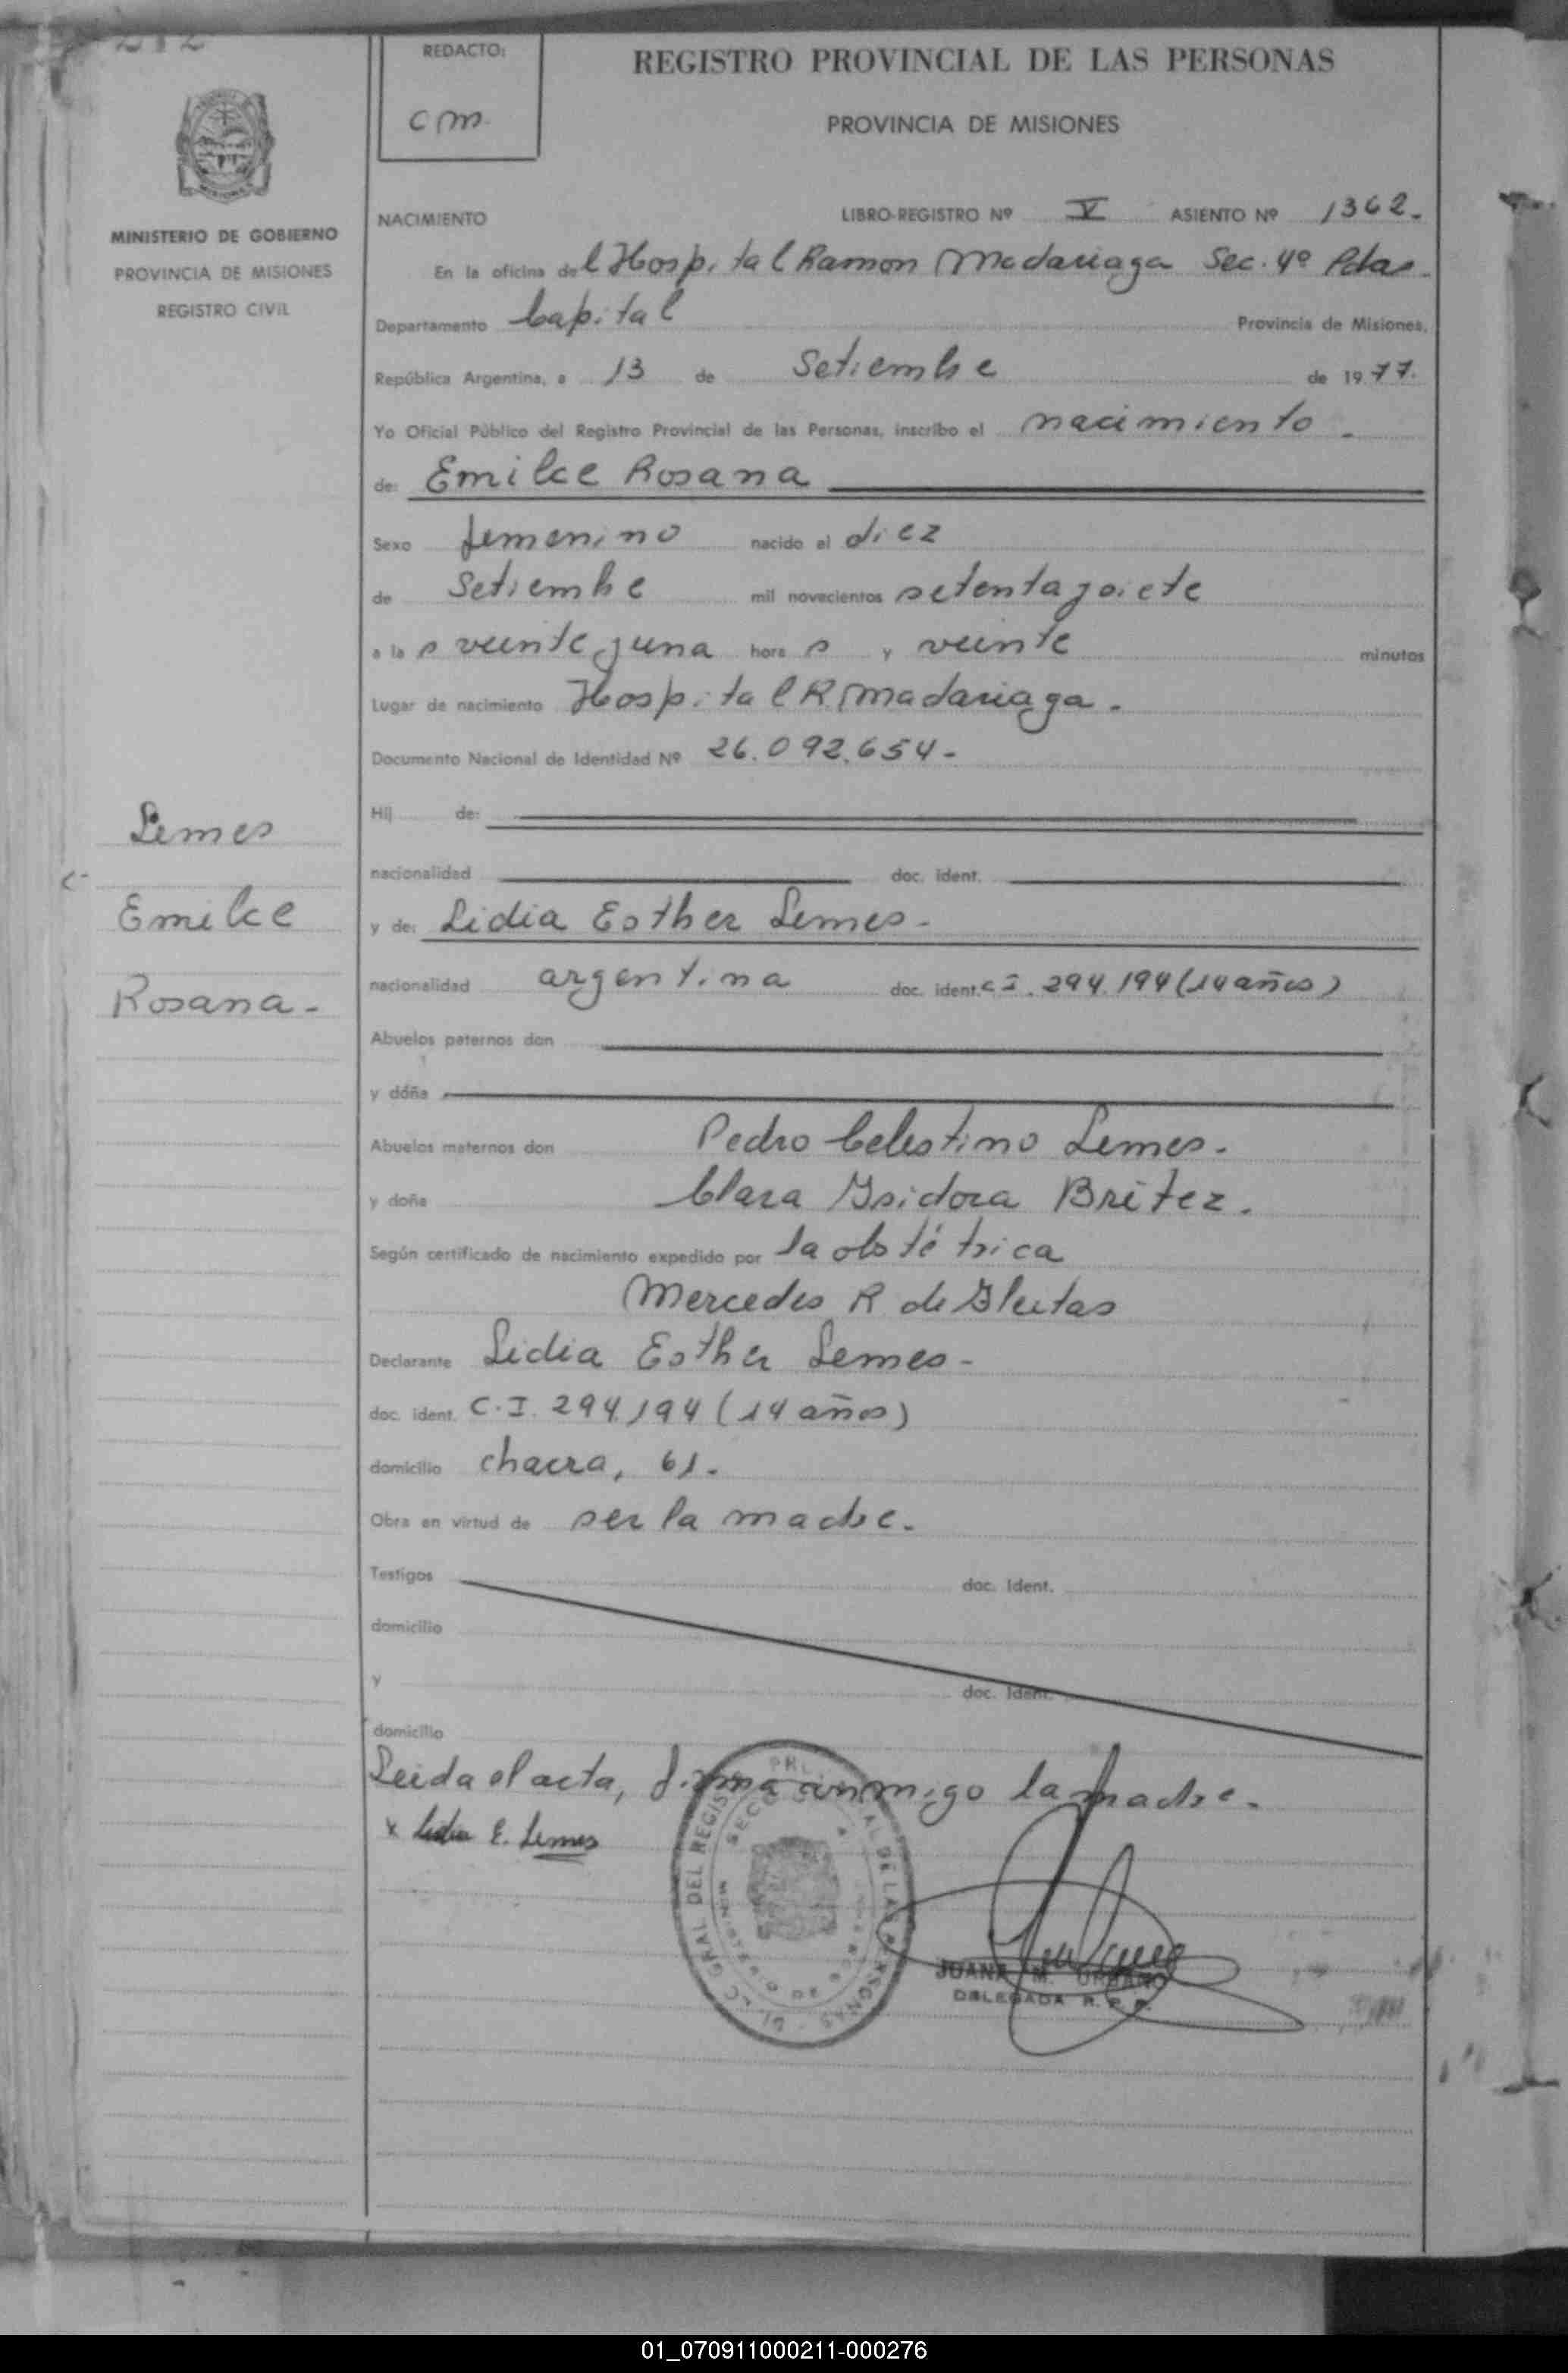 REDACTO:
cm.
REGISTRO PROVINCIAL DE LAS PERSONAS
PROVINCIA DE MISIONES
MINISTERIO DE GOBIERNO
PROVINCIA DE MISIONES
REGISTRO CIVIL
NACIMIENTO LIBRO-REGISTRO Nº V ASIENTO Nº 1362.
En la oficina del Hospital Ramon Madariaga Sec. 4º Pdas.
Departamento Capital Provincia de Misiones,
República Argentina, a 13 de Setiembre de 1977.
Yo Oficial Público del Registro Provincial de las Personas, inscribo el nacimiento.
de: Emilce Rosana
Sexo femenino nacido el diez
de Setiembre mil novecientos setenta y siete
a las veinte y una horas y veinte minutos
Lugar de nacimiento Hospital R. Madariaga.
Documento Nacional de Identidad Nº 26.092.654-
Hij de:
nacionalidad doc. ident.
y de: Lidia Esther Lemes-
nacionalidad argentina doc. ident. C.I. 294.194 (14 años)
Abuelos paternos don
y doña
Abuelos maternos don Pedro Celestino Lemes.
y doña Clara Ysidora Britez.
Según certificado de nacimiento expedido por la obstétrica
Mercedes R de
Declarante Lidia Esther Lemes-
doc. ident. C.I. 294.194 (14 años)
domicilio chacra, 61.
Obra en virtud de ser la madre.
Testigos doc. ident.
domicilio
y doc. ident.
domicilio
Leida el acta, firma conmigo la madre.
x Lidia E. Lemes
JUANA M. URBANO
DELEGADA R. P. P.
Lemes
Emilce
Rosana-
01_070911000211-000276